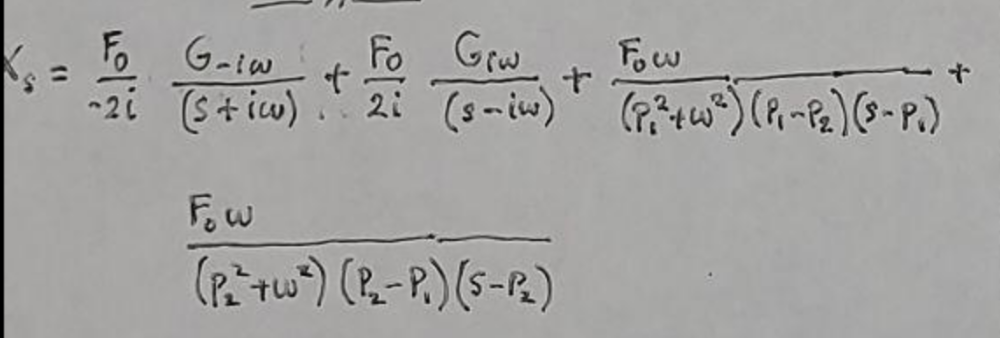 X_s = \frac{F_0}{-2i} \frac{G_{-i\omega}}{(s+i\omega)} + \frac{F_0}{2i} \frac{G_{i\omega}}{(s-i\omega)} + \frac{F_0\omega}{(P_1^2+\omega^2)(P_1-P_2)(s-P_1)} +
\frac{F_0\omega}{(P_2^2+\omega^2)(P_2-P_1)(s-P_2)}